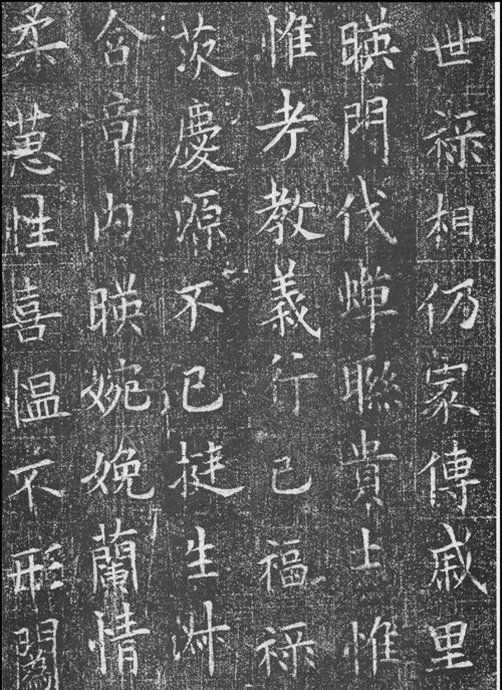 世祿相仍家傳戚里
暎門伐蟬聯貴士惟
惟考教義行己福祿
茨慶源不已挺生淋
含章內暎婉娩蘭情
柔蕙性喜愠不形闈